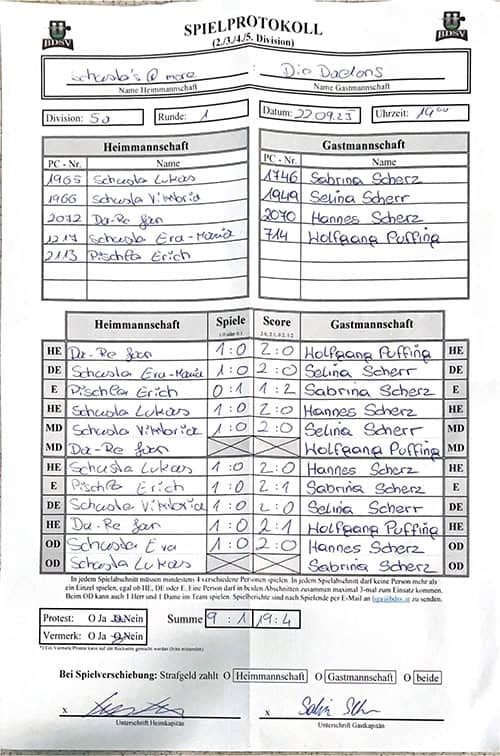 BDSV SPIELPROTOKOLL BDSV
(2./3./4./5. Division)
Schusta's @ more : Die Daltons
Name Heimmannschaft Name Gastmannschaft
Division: 5a Runde: 1 Datum: 22.09.23 Uhrzeit: 19⁰⁰
Heimmannschaft Gastmannschaft
PC - Nr. Name PC - Nr. Name
1965 Schusta Lukas 1746 Sabrina Scherz
1966 Schusta Viktoria 1949 Selina Scherr
2072 Da-Re Jan 2070 Hannes Scherz
1217 Schusta Eva-Maria 714 Wolfgang Puffing
2113 Pischla Erich
Heimmannschaft Spiele Score Gastmannschaft
1:0 oder 0:1 2:0, 2:1, 0:2, 1:2
HE Da-Re Jan 1:0 2:0 Wolfgang Puffing HE
DE Schusta Eva-Maria 1:0 2:0 Selina Scherr DE
E Pischla Erich 0:1 1:2 Sabrina Scherz E
HE Schusta Lukas 1:0 2:0 Hannes Scherz HE
MD Schusta Viktoria 1:0 2:0 Selina Scherr MD
MD Da-Re Jan Wolfgang Puffing MD
HE Schusta Lukas 1:0 2:0 Hannes Scherz HE
E Pischla Erich 1:0 2:1 Sabrina Scherz E
DE Schusta Viktoria 1:0 2:0 Selina Scherr DE
HE Da-Re Jan 1:0 2:1 Wolfgang Puffing HE
OD Schusta Eva 1:0 2:0 Hannes Scherz OD
OD Schusta Lukas Sabrina Scherz OD
In jedem Spielabschnitt müssen mindestens 4 verschiedene Personen spielen. In jedem Spielabschnitt darf keine Person mehr als
ein Einzel spielen, egal ob HE, DE oder E. Eine Person darf in beiden Abschnitten zusammen maximal 3-mal zum Einsatz kommen.
Beim OD kann auch 1 Herr und 1 Dame im Team spielen. Spielberichte sind nach Spielende per E-Mail an liga@bdsv.at zu senden.
Protest: O Ja O Nein Summe 9 : 1 19:4
Vermerk: O Ja O Nein
Bei Spielverschiebung: Strafgeld zahlt O Heimmannschaft O Gastmannschaft O beide
x x
Unterschrift Heimkapitän Unterschrift Gastkapitän